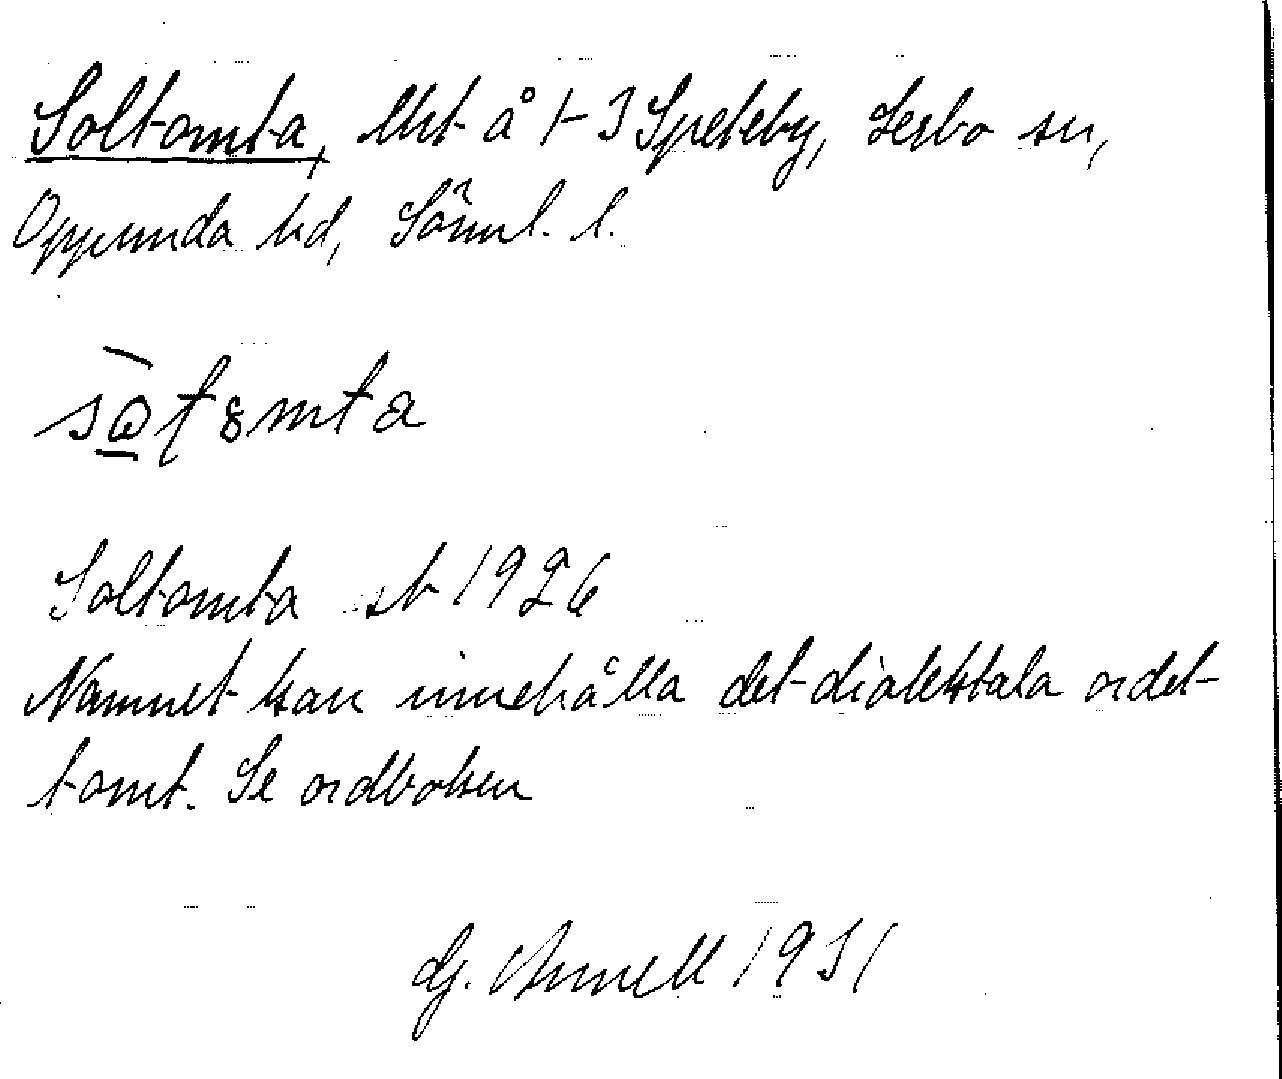 Soltomta, lht å 1-3 Speteby, Lerbo sn,
Oppunda hd, Sörml. l.
sὼ̲tȣmta
Soltomta sb 1926
Namnet kan innehålla det dialektala ordet
tomt. Se ordboken
G. Annell 1931